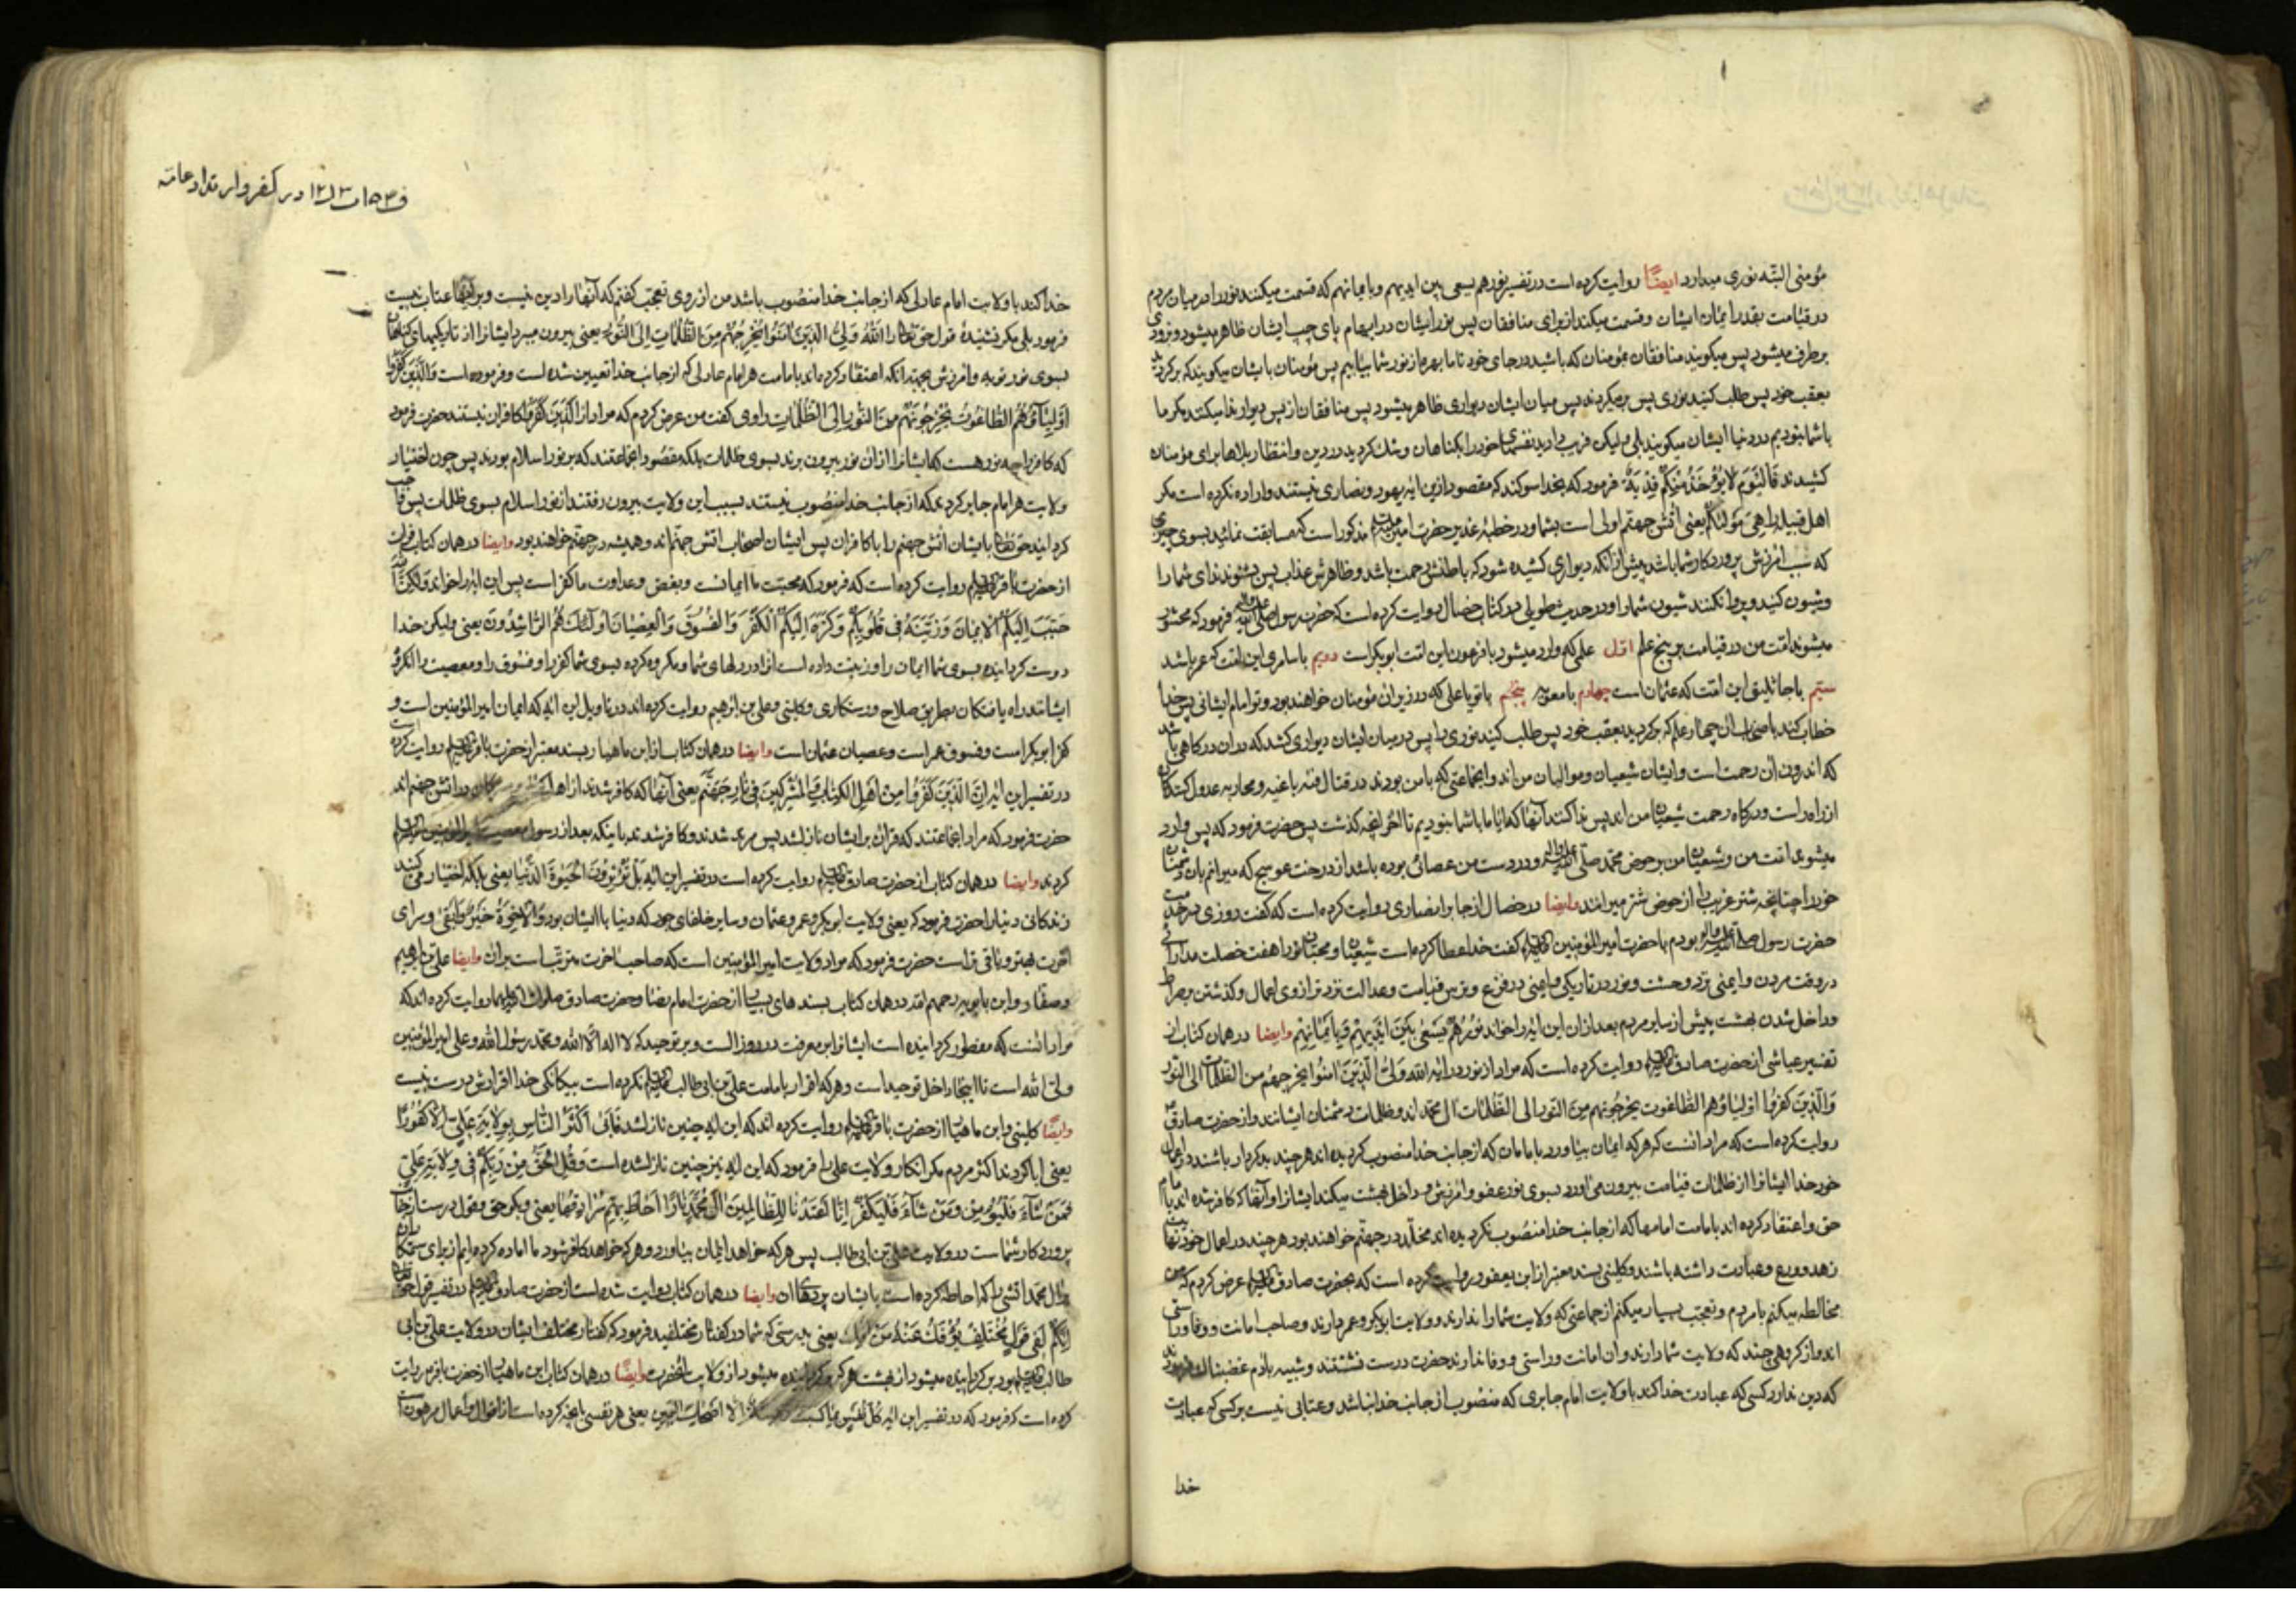 مؤمنی البته نوری میدارد ایضاً روایت کرده است در تفسیر نورهم یسعی بین ایدیهم وبایمانهم که قسمت میکنند نور را در میان مردم
در قیامت بقدر ایمان ایشان وقسمت میکنند از برای منافقان پس نور ایشان در ابهام پای چپ ایشان ظاهر میشود وبزودی
برطرف میشود پس میکویند منافقان بمؤمنان که باشید در جای خود تا ما بهره از نور شما بیابیم پس مؤمنان بایشان میکویند که برکردید
بعقب خود پس طلب کنید نوری پس برمیکردند پس میان ایشان دیواری ظاهر میشود پس منافقان از پس دیوار ندا میکنند مکر ما
باشما نبودیم در دنیا ایشان میکویند بلی ولیکن فریب دادید نفسهای خود را بکناهان وشک کردید در دین وانتظار بلاها برای مؤمنان
کشیدند فَالْیَوْمَ لا یُؤْخَذُ مِنْکُمْ فِدْیَةٌ فرمود که بخدا سوکند که مقصود ازین ایه یهود ونصاری نیستند واراده نکرده است مکر
اهل قبیله را هِیَ مَوْلٰیکُمْ یعنی اتش جهنم اولی است بشما ودر خطبهٔ غدیر حضرت امیر مذکور است که مسابقت نمائید بسوی چیزی
که سبب امرزش پروردکار شما باشد پیش از انکه دیواری کشیده شود که باطنش رحمت باشد وظاهرش عذاب پس بشنوند ندای شما را
وشیون کنید وپروا نکنند شیون شما را ودر حدیث طویلی در کتاب خصال روایت کرده است که حضرت رسول فرمود که محشور
میشوند امت من در قیامت بر پنج علم اول علمی که وارد میشود با فرعون این امت ابوبکر است دویم با سامری این امت که عمر باشد
سیم باجاثلیق این امت که عثمان است چهارم بامعویه پنجم باتو یا علی که در زیر ان مؤمنان خواهند بود وتو امام ایشانی پس خدا
خطاب کند باصحاب ان چهار علم که برکردید بعقب خود پس طلب کنید نوری را پس در میان ایشان دیواری کشد که در ان درکاهی باشد
که اندرون ان رحمت است وایشان شیعیان وموالیان من اند وانجماعتی که بامن بودند در قتال فئه باغیه ومحاربه عدول کنندکان
از راه راست ودرکاه رحمت شیعیان من اند پس ندا کنند آنها که ایا ما باشما نبودیم تا اخر انچه کذشت پس حضرت فرمود که پس وارد
میشوند امت من وشیعیان من بر حوض محمد صلی الله علیه واله ودر دست من عصائی بوده باشد از درخت عوسج که میرانم بان دشمنان
خود را چنانچه شتر غریب را از حوض شتر میرانند وایضا در خصال از جابر انصاری روایت کرده است که کفت روزی در خدمت
حضرت رسول بودم باحضرت امیر المؤمنین کفت خدا عطا کرده است شیعیان ومحبان تورا هفت خصلت مدارائی
در وقت مردن وایمنی نزد وحشت ونور در تاریکی وایمنی در فزع وترس قیامت وعدالت نزد ترازوی اعمال وکذشتن بر صراط
وداخل شدن بهشت پیش از سایر مردم بعد ازان این ایه را خواند نُورُهُمْ یَسْعٰی بَیْنَ اَیْدِیهِمْ وَبِاَیْمَانِهِمْ وایضا در همان کتاب از
تفسیر عیاشی از حضرت صادق روایت کرده است که مراد از نور در ایه الله وَلِیُّ الَّذِینَ آمَنُوا یخرجهم من الظلمات الی النور
وَالَّذِینَ کَفَرُوا اولیاؤهم الطاغوت یخرجونهم من النور الی الظلمات ال محمد اند وظلمات دشمنان ایشانند واز حضرت صادق
روایت کرده است که مراد انست که هر که ایمان بیاورد بامامان که از جانب خدا منصوب کردیده اند هر چند بد کردار باشند در اعمال
خود خدا ایشانرا از ظلمات قیامت بیرون می اورد بسوی نور عفو وامرزش وداخل بهشت میکند ایشانرا وآنها که کافر شده اند بامام
حق واعتقاد کرده اند بامامت امامها که از جانب خدا منصوب نکردیده اند مخلد در جهنم خواهند بود هر چند در اعمال خود نهایت
زهد وورع وعبادت داشته باشند وکلینی بسند معتبر از ابن یعفور روایت کرده است که بحضرت صادق عرض کردم که من
مخالطه میکنم بامردم وتعجب بسیار میکنم از جماعتی که ولایت شما را ندارند وولایت ابوبکر وعمر دارند وصاحب امانت ووفا وراستی
اند واز کروهی چند که ولایت شما دارند وان امانت وراستی ووفا ندارند حضرت درست نشستند وشبیه بادم غضبناک فرمودند
که دین ندارد کسی که عبادت خدا کند باولایت امام جابری که منصوب از جانب خدا نباشد وعتابی نیست بر کسی که عبادت
خدا
در کفر وارتداد عامه
خدا کند باولایت امام عادلی که از جانب خدا منصوب باشد من از روی تعجب کفتم که آنها را دین نیست وبر اینها عتاب نیست
فرمود بلی مکر نشنیدهٔ قول حق تعالی را اَللّٰهُ وَلِیُّ الَّذِینَ آمَنُوا یُخْرِجُهُمْ مِنَ الظُّلُمَاتِ اِلَی النُّورِ یعنی بیرون میبرد ایشانرا از تاریکیهای کناهان
بسوی نور توبه وامرزش بجهة انکه اعتقاد کرده اند بامامت هر امام عادلی که از جانب خدا تعیین شده است وفرموده است وَالَّذِینَ کَفَرُوا
اَوْلِیَآؤُهُمُ الطَّاغُوتُ یُخْرِجُونَهُمْ مِنَ النُّورِ اِلَی الظُّلُمَاتِ راوی کفت من عرض کردم که مراد از الَّذِینَ کَفَرُوا کافران نیستند حضرت فرمود
که کافر را چه نور هست که ایشانرا ازان نور بیرون برند بسوی ظلمات بلکه مقصود انجماعتند که بر نور اسلام بودند پس چون اختیار
ولایت هر امام جابر کردند که از جانب خدا منصوب نیستند بسبب این ولایت بیرون رفتند از نور اسلام بسوی ظلمات پس واجب
کردانید حق تعالی بایشان اتش جهنم را باکافران پس ایشان اصحاب اتش جهنم اند وهمیشه در جهنم خواهند بود وایضا در همان کتاب فرات
از حضرت باقر روایت کرده است که فرمود که محبت ما ایمانست وبغض وعداوت ما کفر است پس این ایه را خواند وَلٰکِنَّ اللّٰهَ
حَبَّبَ اِلَیْکُمُ الْاِیمَانَ وَزَیَّنَهُ فِی قُلُوبِکُمْ وَکَرَّهَ اِلَیْکُمُ الْکُفْرَ وَالْفُسُوقَ وَالْعِصْیَانَ اُولٰٓئِکَ هُمُ الرَّاشِدُونَ یعنی ولیکن خدا
دوست کردانیده بسوی شما ایمان را وزینت داده است انرا در دلهای شما ومکروه کرده بسوی شما کفر را وفسوق را ومعصیت را انکروه
ایشانند راه یافتکان بطریق صلاح ورستکاری وکلینی وعلی بن ابرهیم روایت کرده اند در تاویل این ایه که ایمان امیر المؤمنین است و
کفر ابوبکر است وفسوق عمر است وعصیان عثمان است وایضا در همان کتاب از ابن ماهیار بسند معتبر از حضرت باقر روایت کرده است
در تفسیر این ایه اِنَّ الَّذِینَ کَفَرُوا مِنْ اَهْلِ الْکِتَابِ وَالْمُشْرِکِینَ فِی نَارِ جَهَنَّمَ یعنی آنها که کافر شدند از اهل در اتش جهنم اند
حضرت فرمود که مراد انجماعتند که قران بر ایشان نازل شد پس مرتد شدند وکافر شدند باینکه بعد از رسول
کردند وایضا در همان کتاب از حضرت صادق روایت کرده است در تفسیر این ایه بَلْ تُؤْثِرُونَ الْحَیٰوةَ الدُّنْیَا یعنی بلکه اختیار می کنند
زندکانی دنیا را حضرت فرمود که یعنی ولایت ابوبکر وعمر وعثمان وسایر خلفای جور که دنیا با ایشان بود وَالْآخِرَةُ خَیْرٌ وَاَبْقٰی وسرای
اخرت بهتر وباقی تر است حضرت فرمود که مراد ولایت امیر المؤمنین است که صاحب اخرت مترتب است بران وایضا علی بن ابرهیم
وصفار وابن بابویه رحمهم الله در همان کتاب بسند های بسیار از حضرت امام رضا وحضرت صادق روایت کرده اند که
مراد انست که مفطور کردانیده است ایشانرا بر معرفت در روز الست وبر توحید که لا اله الا الله ومحمد رسول الله وعلی امیر المؤمنین
ولی الله است تا اینجا داخل توحید است وهر که اقرار بامامت علی بن ابی طالب نکرده است بیکانکی خدا اقرارش درست نیست
وایضاً کلینی وابن ماهیار از حضرت باقر روایت کرده اند که این ایه چنین نازل شد فَاَبٰی اَکْثَرُ النَّاسِ بِوِلَایَةِ عَلِیٍّ اِلَّا کُفُورًا
یعنی ابا کردند اکثر مردم مکر انکار ولایت علی را فرمود که این ایه نیز چنین نازل شده است وَقُلِ الْحَقُّ مِنْ رَبِّکُمْ فِی وِلَایَةِ عَلِیٍّ
فَمَنْ شَآءَ فَلْیُؤْمِنْ وَمَنْ شَآءَ فَلْیَکْفُرْ اِنَّا اَعْتَدْنَا لِلظَّالِمِینَ آلَ مُحَمَّدٍ نَارًا اَحَاطَ بِهِمْ سُرَادِقُهَا یعنی وبکو حق وقول درست از جانب
پروردکار شما است در ولایت علی بن ابی طالب پس هر که خواهد ایمان بیاورد وهر که خواهد کافر شود ما اماده کرده ایم از برای ستمکاران
بر آل محمد اتشی را که احاطه کرده است بایشان پردهای ان وایضا در همان کتاب روایت شده است از حضرت صادق در تفسیر قول حق تعالی
اِنَّکُمْ لَفِی قَوْلٍ مُخْتَلِفٍ یُؤْفَکُ عَنْهُ مَنْ اُفِکَ یعنی بدرستی که شما در کفتار مختلفید فرمود که کفتار مختلف ایشان در ولایت علی بن ابی
طالب بود برکردانیده میشود از بهشت هر که برکردانیده میشود از ولایت انحضرت وایضاً در همان کتاب ابن ماهیار از حضرت باقر روایت
کرده است که فرمود که در تفسیر این ایه کُلُّ نَفْسٍ بِمَا کَسَبَتْ اِلَّا اَصْحَابَ الْیَمِینِ یعنی هر نفسی بانچه کرده است از اقوال واعمال مرهون است